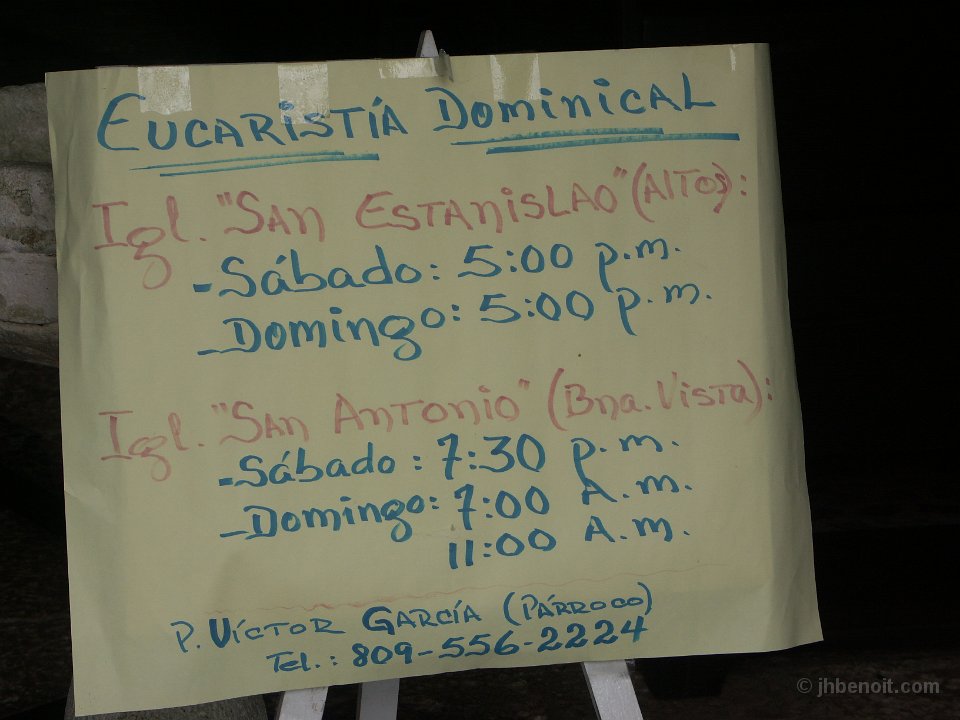 Eucaristía Dominical
Igl. "San Estanislao" (Altos):
- Sábado: 5:00 p.m.
- Domingo: 5:00 p.m.
Igl. "San Antonio" (Bna. Vista):
- Sábado: 7:30 p.m.
- Domingo: 7:00 A.m.
11:00 A.m.
P. Víctor García (Párroco)
Tel.: 809-556-2224
© jhbenoit.com